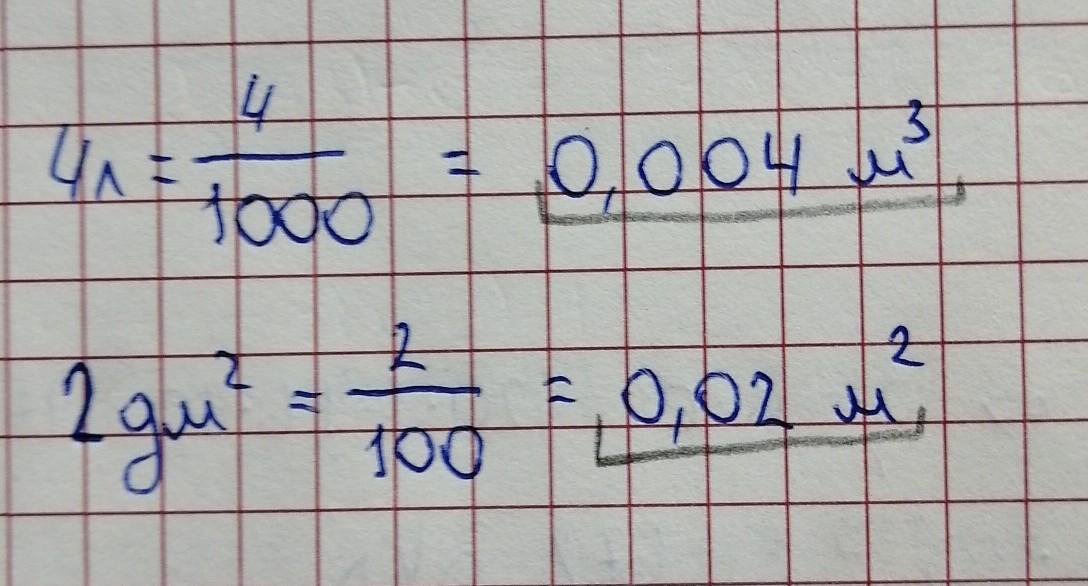 4л = 4/1000 = 0,004 м³
2 дм² = 2/100 = 0,02 м²